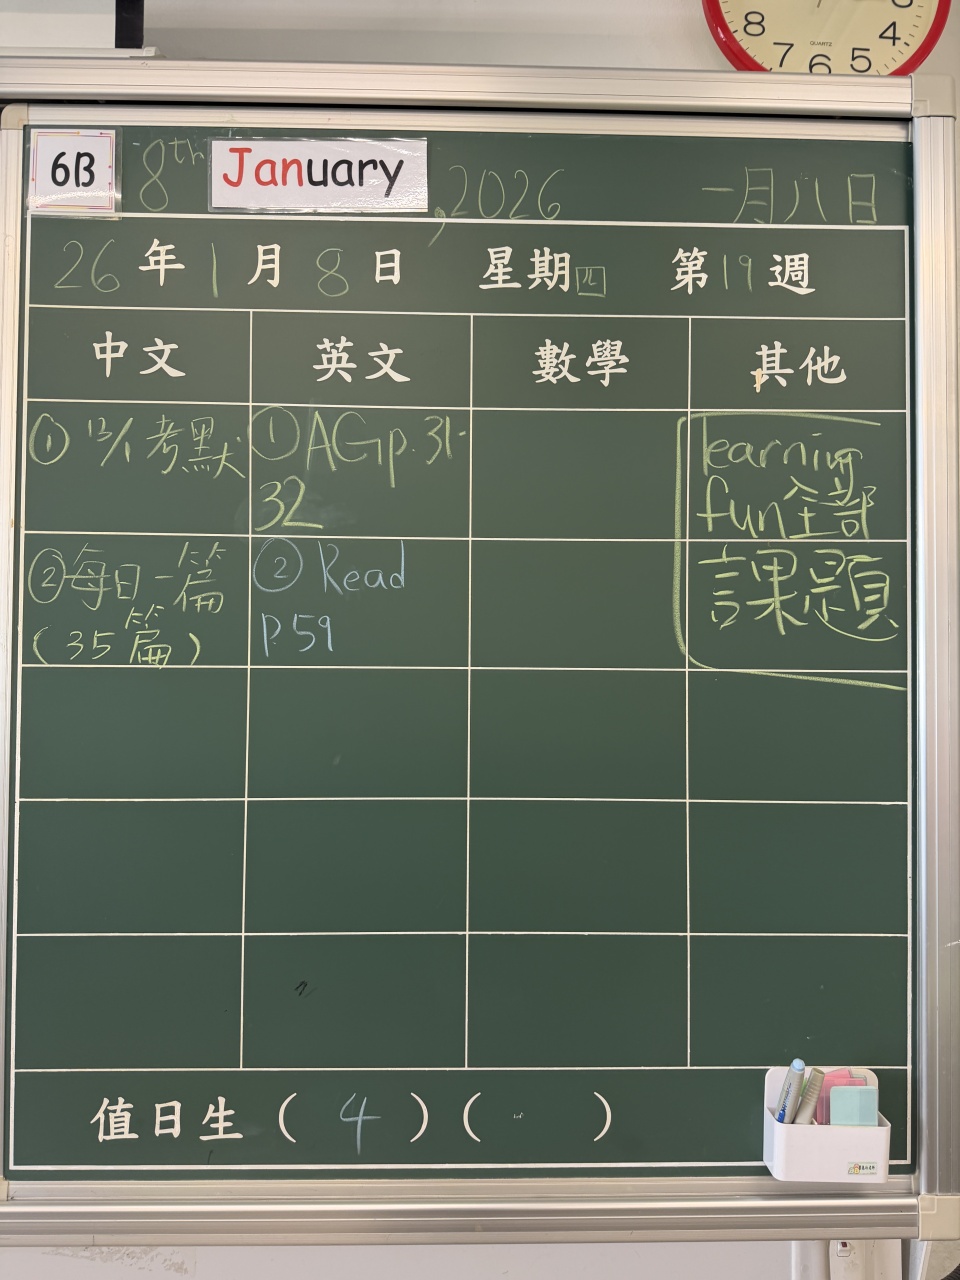 8
4
7
6
5
QUARTZ
6B 8th January, 2026 一月八日
26年1月8日 星期四 第19週
中文 英文 數學 其他
① 13/1 考默
① AG p.31-
32
learning
fun全部
課題
② 每日一篇
(35篇)
② Read
p.59
值日生 ( 4 ) ( )